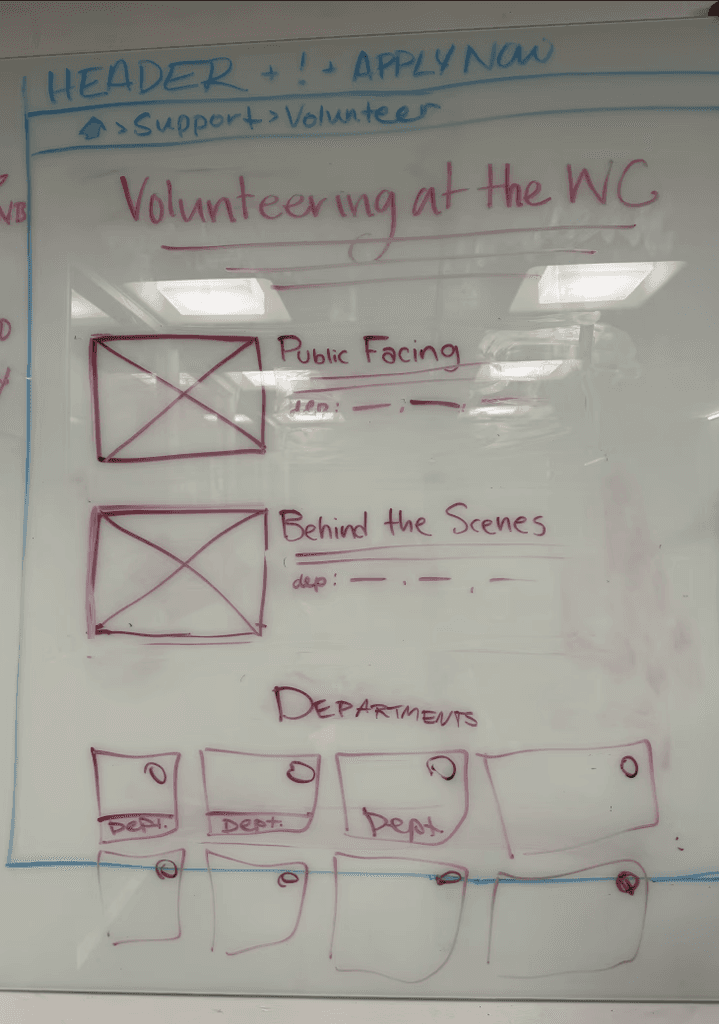 HEADER + ! + APPLY NOW
> Support > Volunteer
Volunteering at the WC
Public Facing
dep:
Behind the Scenes
dep:
DEPARTMENTS
DEPT.
Dept.
Dept.